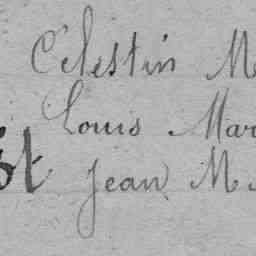 Célestin M
Louis Mar
st Jean M